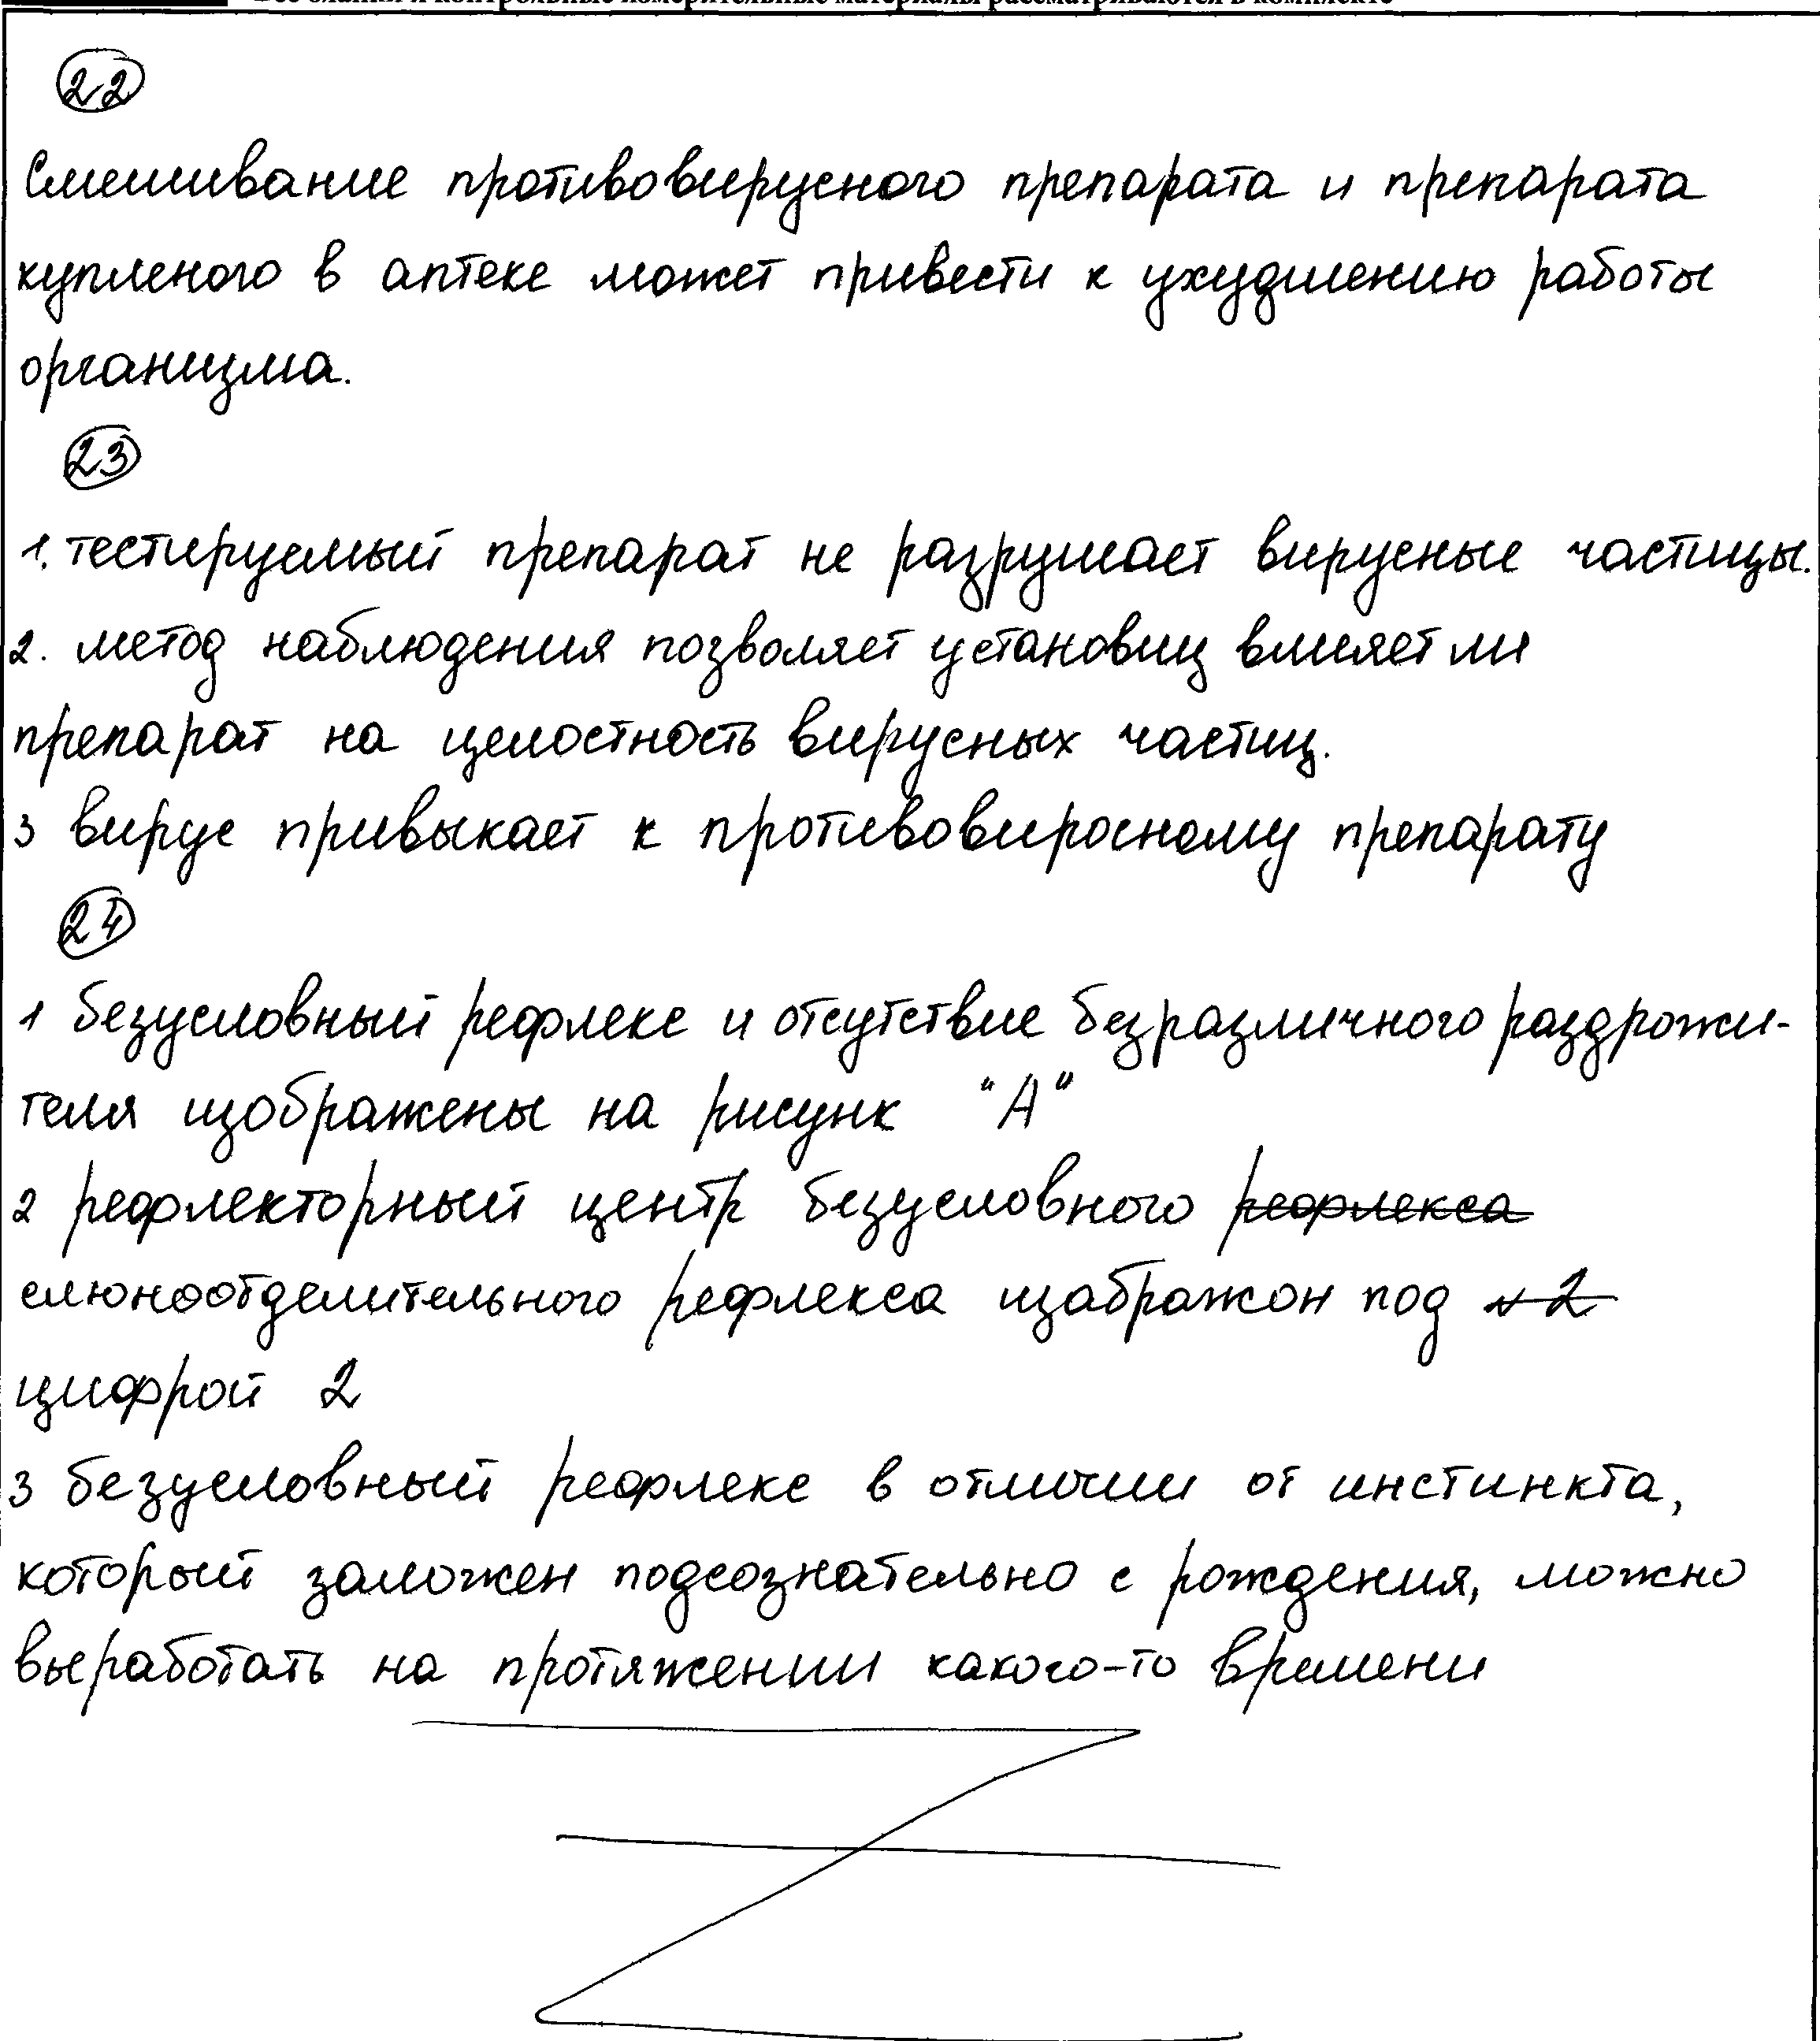 22
Смешивание противовирусного препарата и препарата
купленого в аптеке может привести к ухудшению работы
организма.
23
1. тестируемый препарат не разрушает вирусные частицы.
2. метод наблюдения позволяет установиц влияет ли
препарат на целостность вирусных частиц.
3 вирус привыкает к противовиросному препарату
24
1 безусловный рефлекс и отсутствие безразличного раздрожи-
теля изображены на рисунк "А"
2 рефлекторный центр безусловного рефлекса
слюноотделительного рефлекса изабражон под №2
цифрой 2
3 безусловный рефлекс в отличии от инстинкта,
который заложен подсознательно с рождения, можно
выработать на протяжении какого-то времени